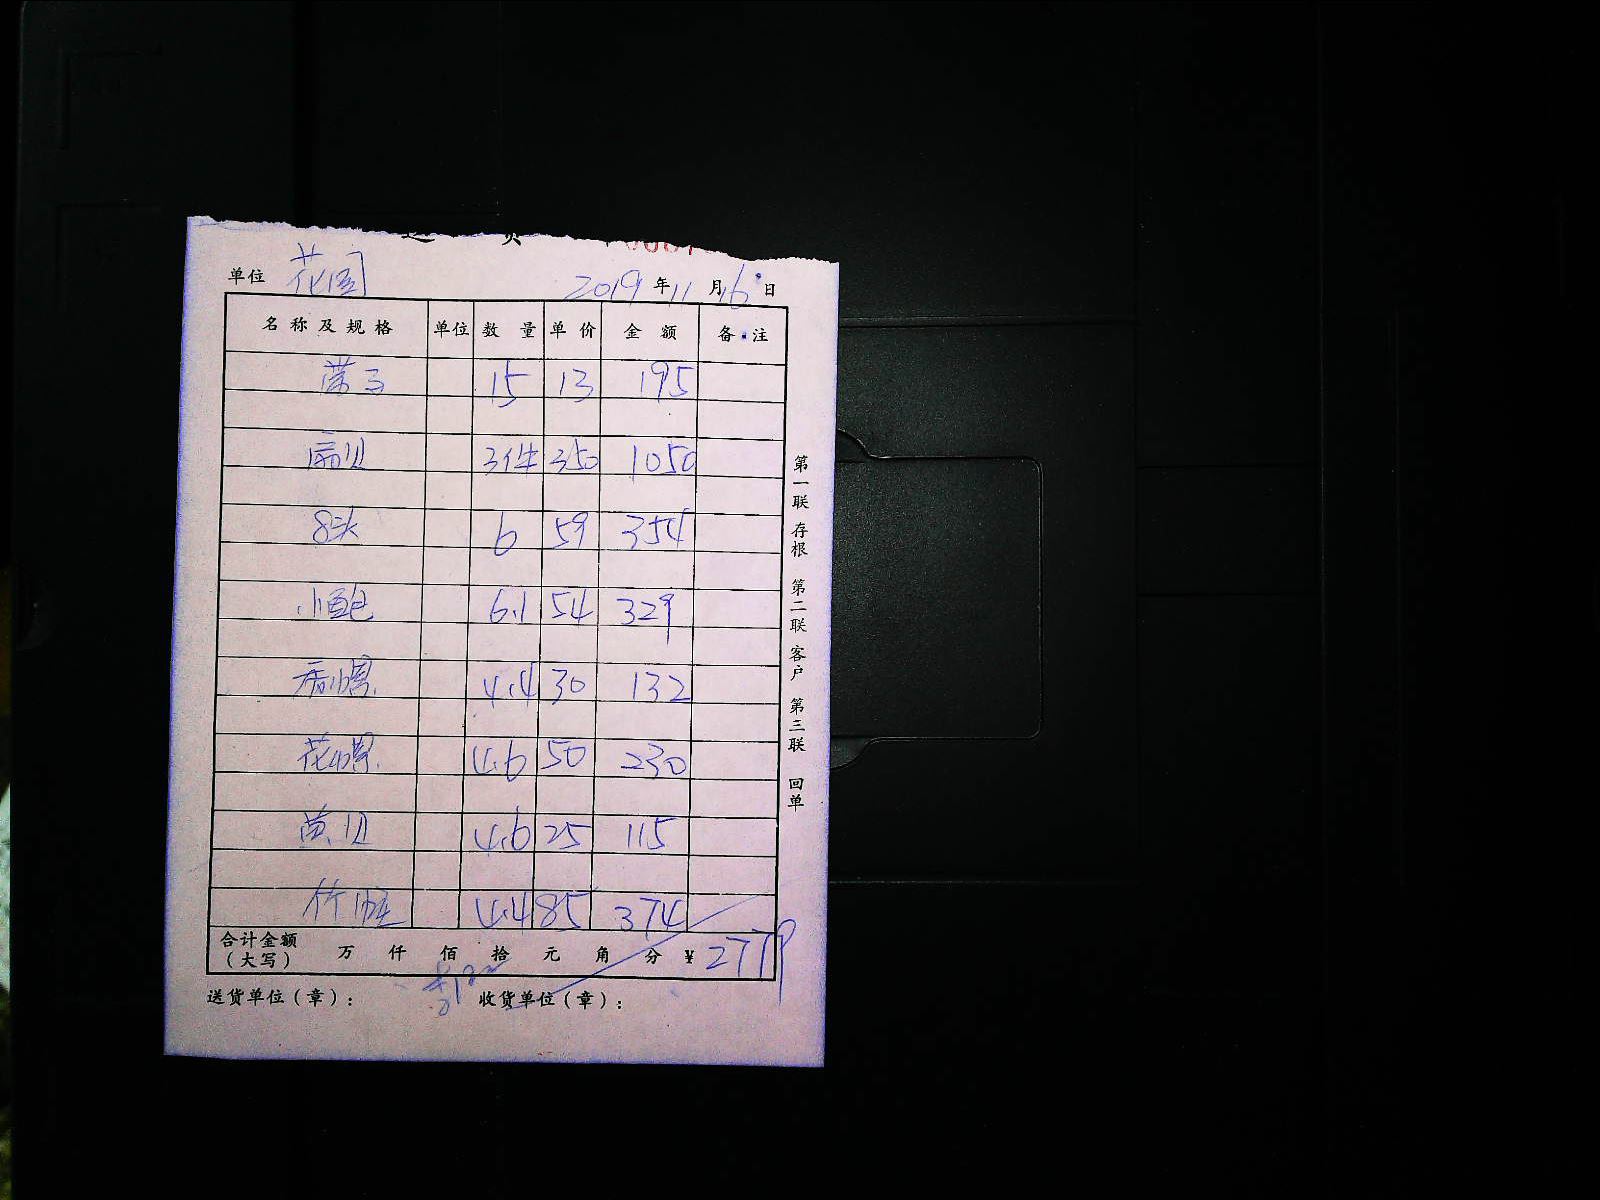 单位 花园 2019年11月16日
名称及规格 单位 数量 单价 金额 备注
带子 15 13 195
扇贝 3件 350 1050
8头 6 59 354
小鲍 6.1 54 329
香螺 4.4 30 132
花螺 4.6 50 230
黄贝 4.6 25 115
竹蛏 4.4 85 374
合计金额(大写) 万 仟 佰 拾 元 角 分 ¥ 2779
送货单位(章): 收货单位(章):
第一联 存根 第二联 客户 第三联 回单